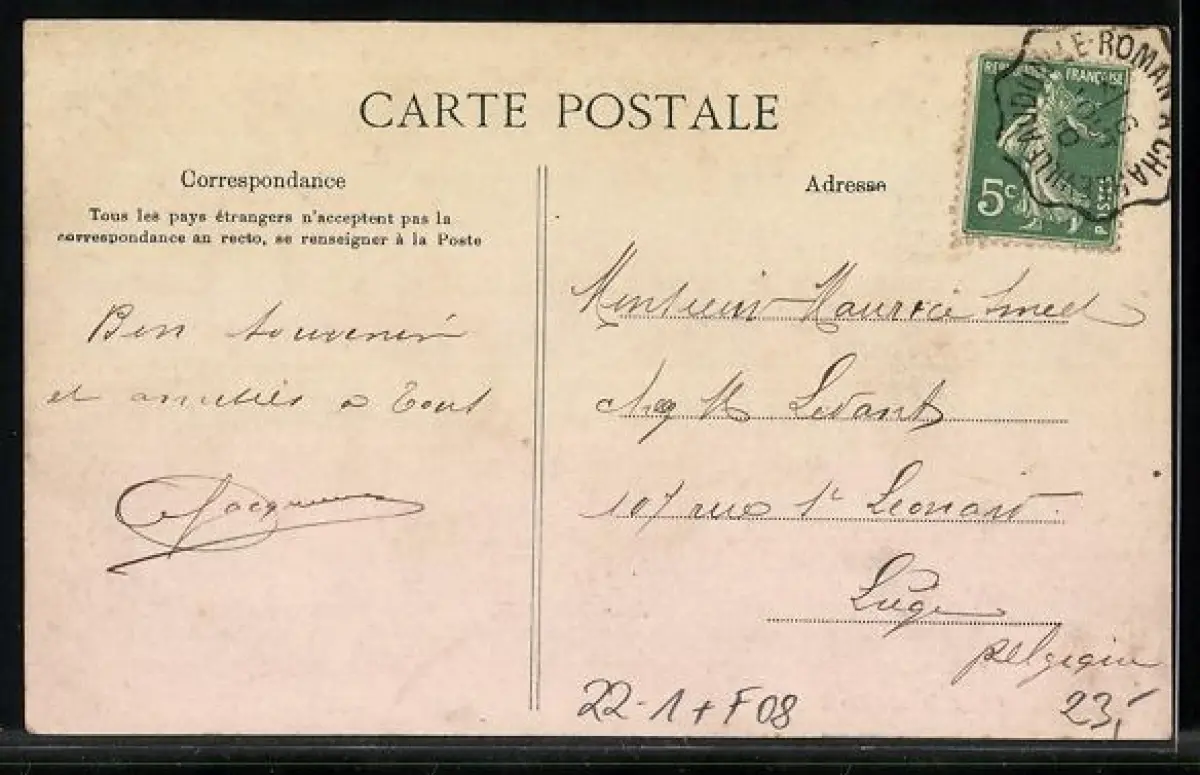 CARTE POSTALE
Correspondance
Tous les pays étrangers n'acceptent pas la
correspondance au recto, se renseigner à la Poste
Bon souvenir
et amitiés a tous
Jacques
Adresse
REPUBLIQUE FRANÇAISE
5c
POSTES
Monsieur Maurice Smed
chez M Levant
107 rue St Leonard
Liège
Belgique
22-1+F08
23,-